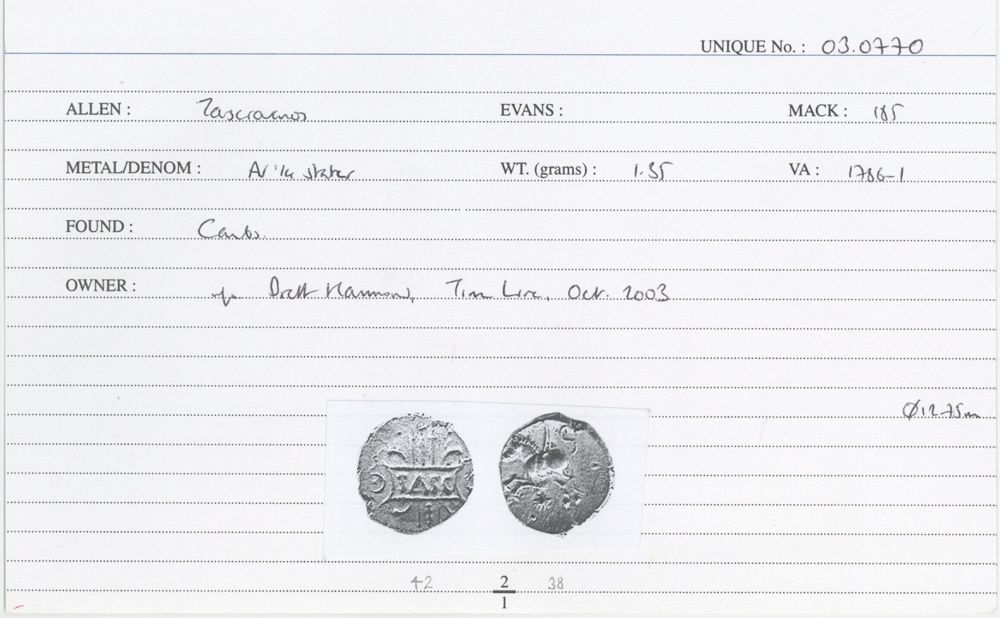 UNIQUE No. : 03.0770
ALLEN : EVANS : MACK : 185
METAL/DENOM : AV 1/4 stater WT. (grams) : 1.35 VA : 1786-1
FOUND : Cambs.
OWNER : Oct. 2003
Ø12.75m
TASC
42 2/1 38